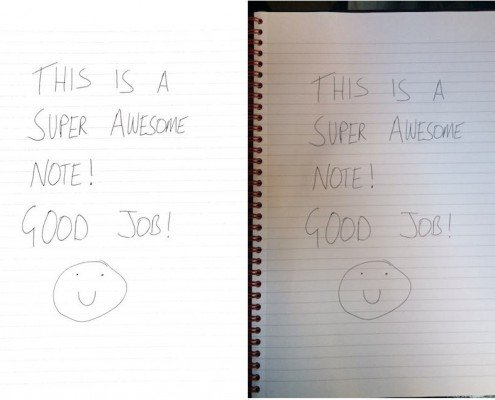 THIS IS A
SUPER AWESOME
NOTE!
GOOD JOB!
THIS IS A
SUPER AWESOME
NOTE!
GOOD JOB!